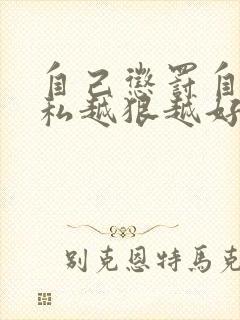 自己懲罰自
私越狠越好
别克恩特馬克